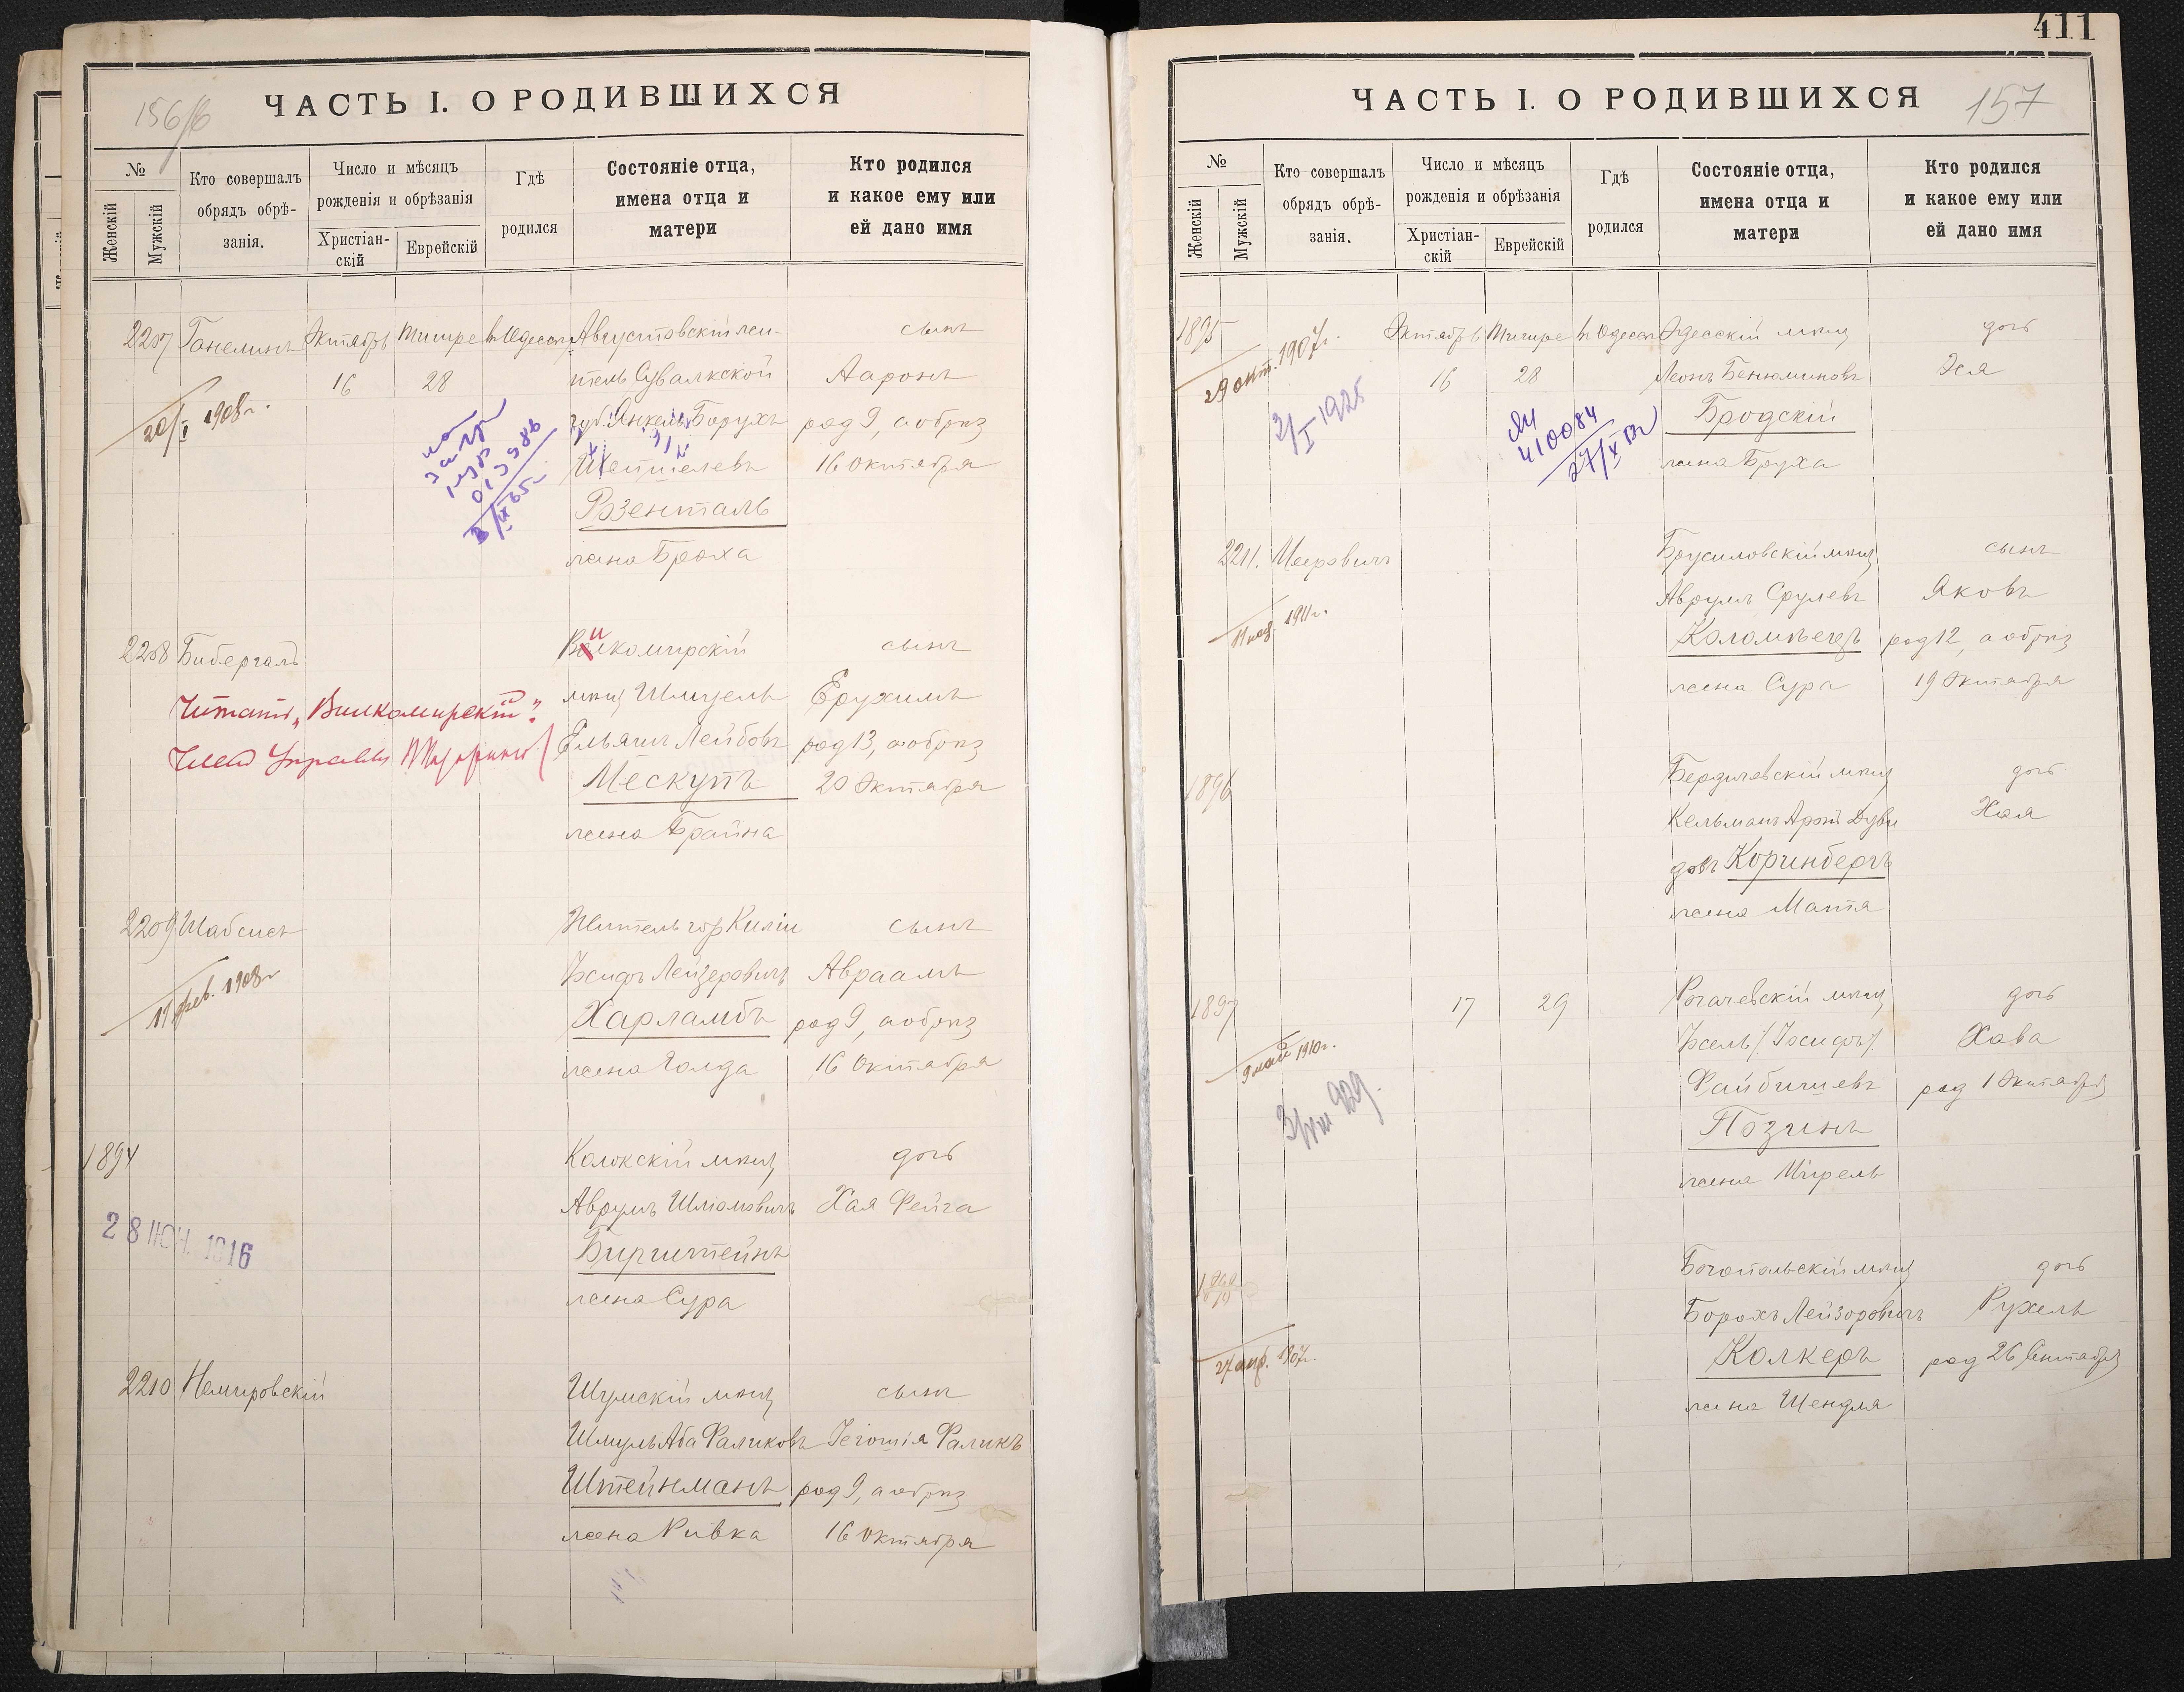 156/6
ЧАСТЬ I. О РОДИВШИХСЯ
№
Женскій
Мужскій
Кто совершалъ
обрядъ обрѣ-
занія.
Число и мѣсяцъ
рожденія и обрѣзанія
Христіан-
скій
Еврейскій
Гдѣ
родился
Состояніе отца,
имена отца и
матери
Кто родился
и какое ему или
ей дано имя
2207 Ганелинъ Октября Тишре въ Одессѣ Августовскій жи- сынъ
16 28 тель Сувалкской Ааронъ
20/I 1908г.
губ. Янкель Борухъ род 9, а обрѣз
16 Октября
013986
Розенталь
жена Броха
2208 Бибергалъ Вилкомирскій сынъ
Читать „Вилкомирскій".
мѣщ Шмуель Ерухимъ
Членъ Управы
Ельяшъ Лейбовъ род 13, а обрѣз
Мескупъ 20 Октября
жена Брайна
2209 Шабсисъ Житель гор Киліи сынъ
11 фев. 1908г
Іосифъ Лейзеровичъ Авраамъ
Харламбъ род 9, а обрѣз
жена Голда 16 Октября
1894 мѣщ дочь
Аврумъ Шлиомовичъ Хая Фейга
28 ІЮН. 1916
Бирштейнъ
жена Сура
2210 Немировскій Шумскій мѣщ сынъ
Шмуль Аба Фаликовъ Іегошія Фаликъ
Штейнманъ род 9, а обрѣз
жена Ривка 16 Октября
411
ЧАСТЬ I. О РОДИВШИХСЯ
157
№
Женскій
Мужскій
Кто совершалъ
обрядъ обрѣ-
занія.
Число и мѣсяцъ
рожденія и обрѣзанія
Христіан-
скій
Еврейскій
Гдѣ
родился
Состояніе отца,
имена отца и
матери
Кто родился
и какое ему или
ей дано имя
1895 Октября Тишре въ Одессѣ Одесскій мѣщ дочь
29 окт. 1907г.
16 28 Леонъ Бенюминовъ Эся
2/I 1925
410084
Бродскій
жена Бруха
2211. Меировичъ Брусиловскій мѣщ сынъ
11 1911г.
Аврумъ Срулевъ Яковъ
Коломѣецъ род 12, а обрѣз
жена Сура 19 Октября
1896 Бердичевскій мѣщ дочь
Кельманъ Аронъ Дуви Хая
довъ Коринбергъ
жена Мантя
1897 17 29 Рогачевскій мѣщ дочь
9 май 1910г.
Іосель /Іосифъ/ Хава
Файбишевъ род 1 Октября
3/VIII 929.
Позинъ
жена Мирель
Богопольскій мѣщ дочь
Борохъ Лейзоровичъ Рухель
27 апр. 1907г.
Колкеръ род 26 Сентября
жена Шендля